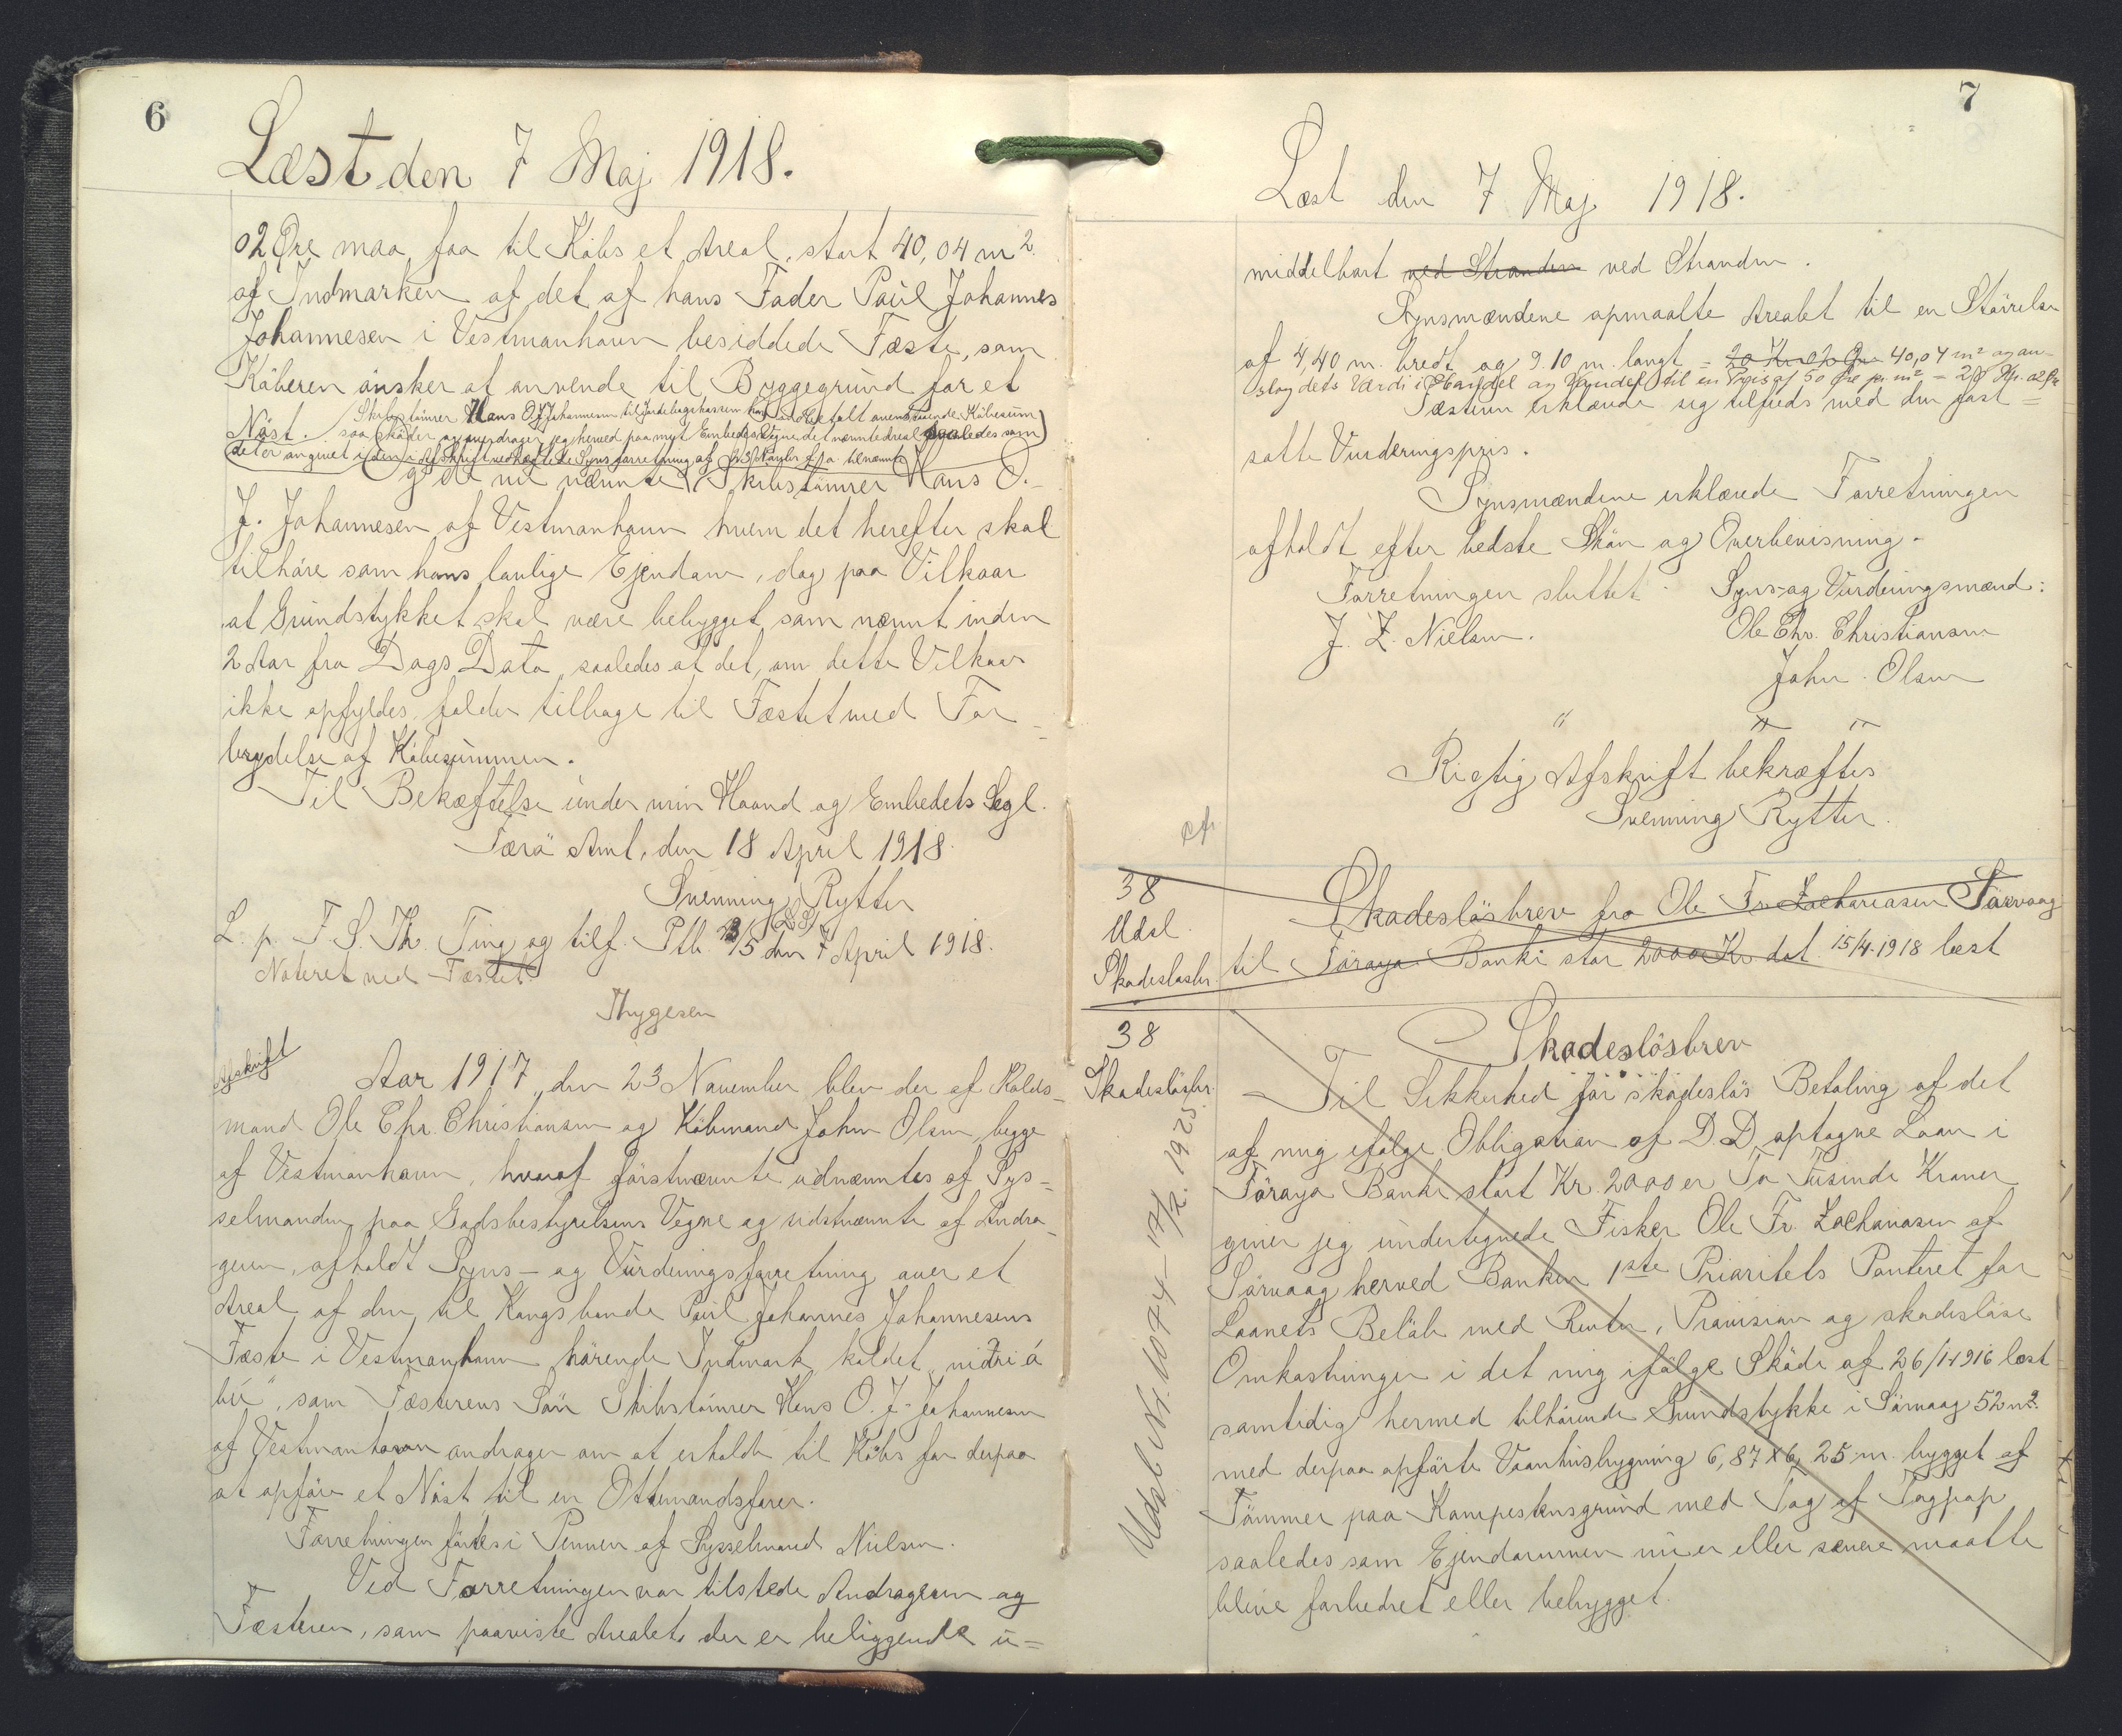 6
Læst den 7 Maj 1918.
02 Øre maa faa til Købs et Areal, stort 40,04 m2
af Indmarken af det af hans Fader Poul Johannes
Johannesen i Vestmanhavn besiddede Fæste, som
Köberen önsker at anvende til Byggegrund for et
Skibstömrer Hans O J Johannesen til Jordebogskassen har indbetalt ovennævnte Köbesum
Nöst. saa sköder og overdrager jeg herved paa mit Embeds Vegne det nævnte Areal saaledes som
det er angivet i den i Afskrift vedhæftede Synsforretning af 23 Novbr. f. A. til nævnte
Skibstömrer Hans O.
J. Johannesen af Vestmanhavn hvem det herefter skal
tilhöre som hans lovlige Ejendom, dog paa Vilkaar
at Grundstykket skal være bebygget som nævnt inden
2 Aar fra Dags Dato saaledes at det, om dette Vilkaar
ikke opfyldes, falder tilbage til Fæstet med For-
brydelse af Köbesummen.
Til Bekæftelse under min Haand og Embedets Segl.
Færö Amt, den 18 April 1918.
Svenning Rytter
(L.S.)
L. p. F. S. Th. Ting og tilf. Ptb. 23/5 den 7 April 1918.
Noteret ved Fæstet
Thygesen
Afskrift
Aar 1917, den 23 November blev der af Kolds-
mand Ole Chr. Christiansen og Köbmand John Olsen, begge
af Vestmanhavn, hvoraf förstnævnte udnævntes af Sys-
selmanden paa Godsbestyrelsens Vegne og sidstnævnte af Andra-
geren, afholdt Syns- og Vurderingsforretning over et
Areal af den til Kongsbonde Poul Johannes Johannesens
Fæste i Vestmanhavn hörende Indmark kaldet "niðri á
bö", som Fæsterens Sön Skibstömrer Hans O. J. Johannesen
af Vestmanhavn andrager om at erholde til Köbs for derpaa
at opföre et Nöst til en Ottemandsfarer.
Forretningen förtes i Pennen af Sysselmand Nielsen.
Ved Forretningen var tilstede Andrageren og
Fæsteren, som paaviste Arealet der er beliggende u=
7
Læst den 7 Maj 1918.
middelbart ved Stranden ved Stranden.
Synsmændene opmaalte Arealet til en Störrelse
af 4,40 m. bredt og 9.10 m. langt = 20 Kr. 02 Øre 40,04 m2 og an-
slog dets Værdi i Handel og Vandel til en Pris af 50 Øre pr. m2 = 20 Kr. 02 Øre
Fæsteren erklærede sig tilfreds med den fast=
satte Vurderingspris.
Synsmændene erklærede Forretningen
afholdt efter bedste Skön og Overbevisning.
Forretningen sluttet. Syns-og Vurderingsmænd:
J. Z. Nielsen. Ole Chr. Christiansen
John Olsen
" " "
Rigtig Afskrift bekræftes
Svenning Rytter.
38
Udsl.
Skadeslösbr.
Skadeslösbrev fra Ole Fr. Zachariasen Sörvaag
til Föroya Banki stor 2000 Kr. dat. 15/4.1918 læst
38
Skadeslösbr.
Udsl. Nr. 1074 - 17/2. 1925.
Skadeslösbrev
Til Sikkerhed for skadeslös Betaling af det
af mig ifölge Obligation af D.D. optagne Laan i
Föroya Banki stort Kr. 2000 er To Tusinde Kroner
giver jeg undertegnede Fisker Ole Fr. Zachariasen af
Sörvaag herved Banken 1ste Prioritets Panteret for
Laanets Belöb med Renter, Provision og skadeslöse
Omkostninger i det mig ifölge Sköde af 26/1 1916 læst
samtidig hermed tilhörende Grundstykke i Sörvaag 52 m2.
med derpaa opförte Vaanhusbygning 6,87 x 6,25 m. bygget af
Tömmer paa Kampestensgrund med Tag af Tagpap
saaledes som Ejendommen nu er eller senere maatte
blive forbedret eller bebygget.